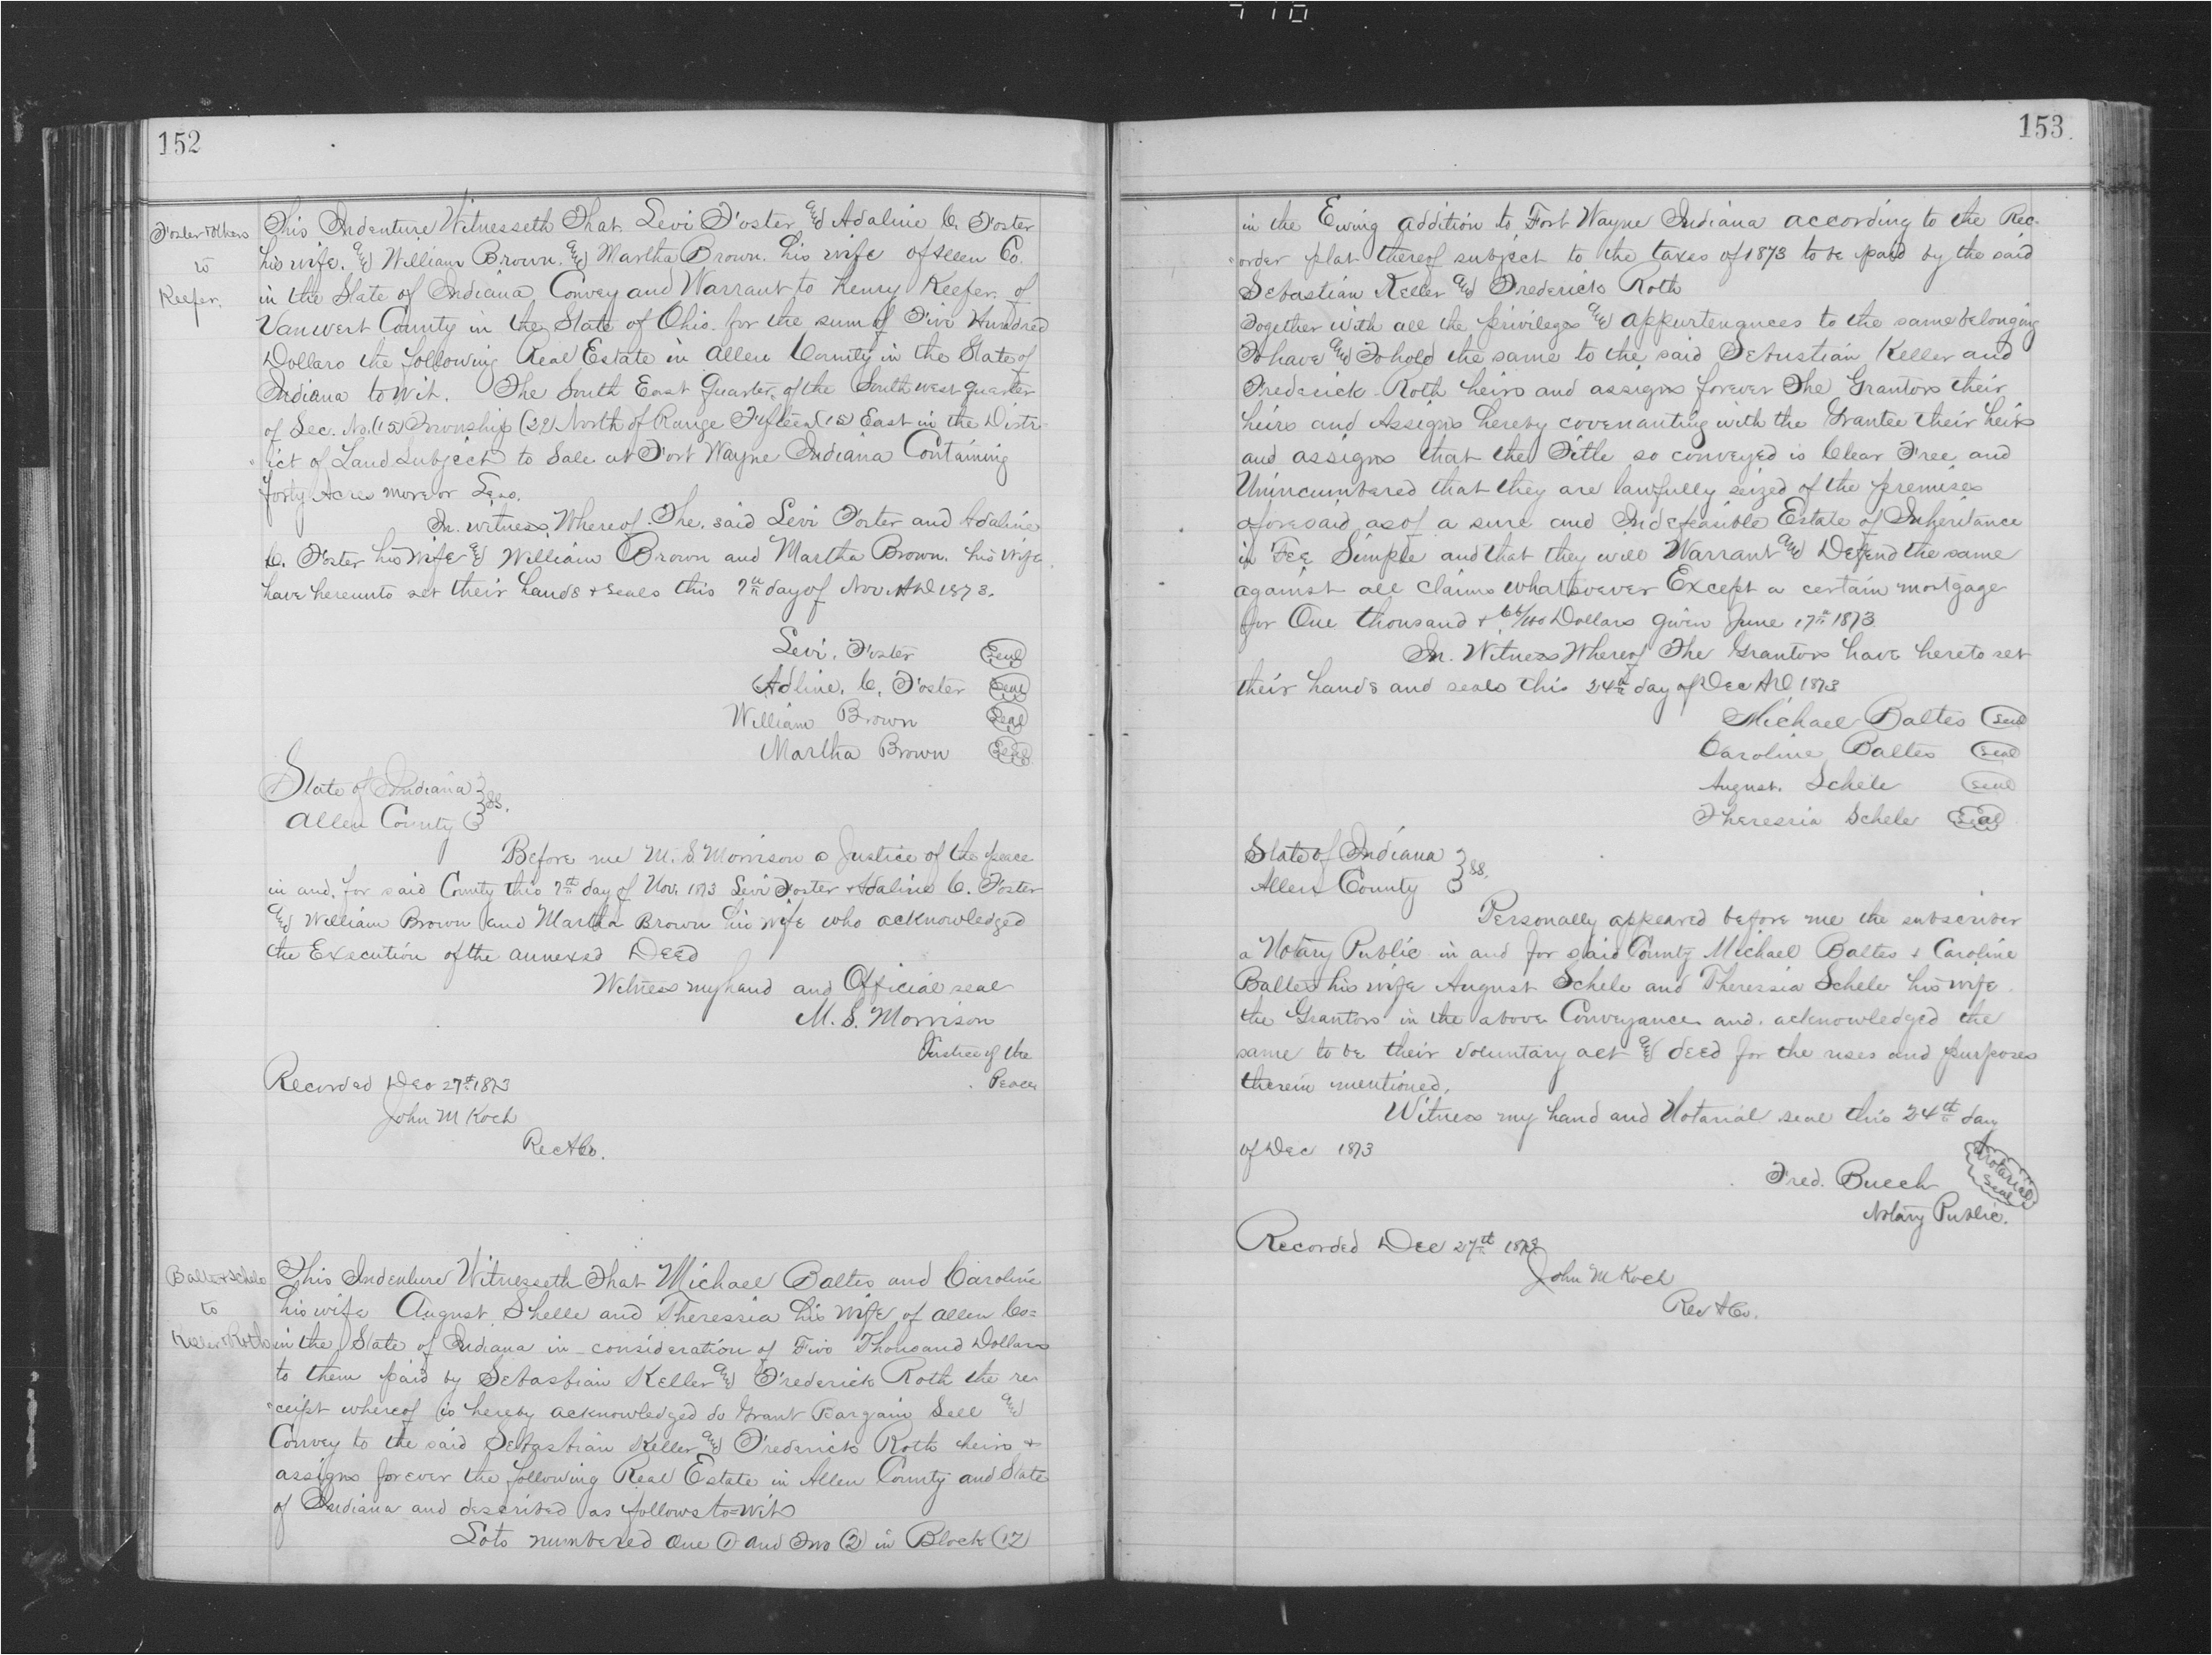 152
Foster & Others
to
Keefer.
This Indenture Witnesseth That Levi Foster and Adaline C. Foster
his wife. and William Brown. and Martha Brown. his wife of Allen Co.
in the State of Indiana Convey and Warrant to Henry Keefer. of
Vanwert County in the State of Ohio. for the sum of Five Hundred
Dollars the following Real Estate in Allen County in the State of
Indiana to wit. The South East Quarter of the South west quarter
of Sec. No. (15) Township (32) North of Range Fifteen (15) East in the Distr-
ict of Land Subject to Sale at Fort Wayne Indiana Containing
forty Acres more or Less.
In. witness Whereof. The. said Levi Foster and Adaline
C. Foster his Wife and William Brown and Martha Brown. his Wife
have hereunto set their hands & seals this 7th day of Nov. AD 1873.
Levi. Foster Seal
Adline. C. Foster Seal
William Brown Seal
Martha Brown Seal
State of Indiana
Allen County ss.
Before me M. S. Morrison a Justice of the peace
in and. for said County this 7th day of Nov. 1873 Levi Foster & Adaline C. Foster
and William Brown and Martha Brown his wife who acknowledged
the Execution of the annexed Deed
Witness my hand and Official seal
M. S. Morrison
Justice of the
Peace
Recorded Dec 27th 1873
John M Koch
Rec A Co.
Baltes & Schele
to
Keller & Roth
This Indenture Witnesseth That Michael Baltes and Caroline
his wife August Shelle and Theressia his wife of Allen Co=
in the State of Indiana in consideration of Five Thousand Dollars
to them paid by Sebastian Keller and Frederick Roth the re-
ceipt whereof is hereby acknowledged do Grant Bargain Sell and
Convey to the said Sebastian Keller and Frederick Roth heirs &
assigns forever the following Real Estate in Allen County and State
of Indiana and described as follows to=wit
Lots numbered One (1) and Two (2) in Block (12)
153.
in the Ewing addition to Fort Wayne Indiana according to the Rec-
order plat thereof subject to the taxes of 1873 to be paid by the said
Sebastian Keller and Frederick Roth
Together with all the privileges and appurtenances to the same belonging
To have and To hold the same to the said Sebastian Keller and
Frederick Roth heirs and assigns forever The Grantors their
heirs and Assigns hereby covenanting with the Grantee their heirs
and assigns that the Title so conveyed is Clear Free and
Unincumbered that they are lawfully seized of the premises
aforesaid as of a sure and Indefeasible Estate of Inheritance
in Fee Simple and that they will Warrant and Defend the same
against all claims whatsoever Except a certain mortgage
for One thousand & 66/100 Dollars given June 17th 1873
In. Witness Whereof The Grantors have hereto set
their hands and seals this 24th day of Dec AD 1873
Michael Baltes Seal
Caroline Baltes Seal
August. Schele Seal
Theressia Schele Seal
State of Indiana
Allen County ss.
Personally appeared before me the subscriber
a Notary Public in and for said County Michael Baltes & Caroline
Baltes his wife August Schele and Theressia Schele his wife.
the Grantors in the above Conveyance and. acknowledged the
same to be their voluntary act and deed for the uses and purposes
therein mentioned.
Witness my hand and Notarial seal this 24th day
of Dec 1873
Fred. Buech Notarial Seal
Notary Public.
Recorded Dec 27th 1873
John M Koch
Rec A Co.